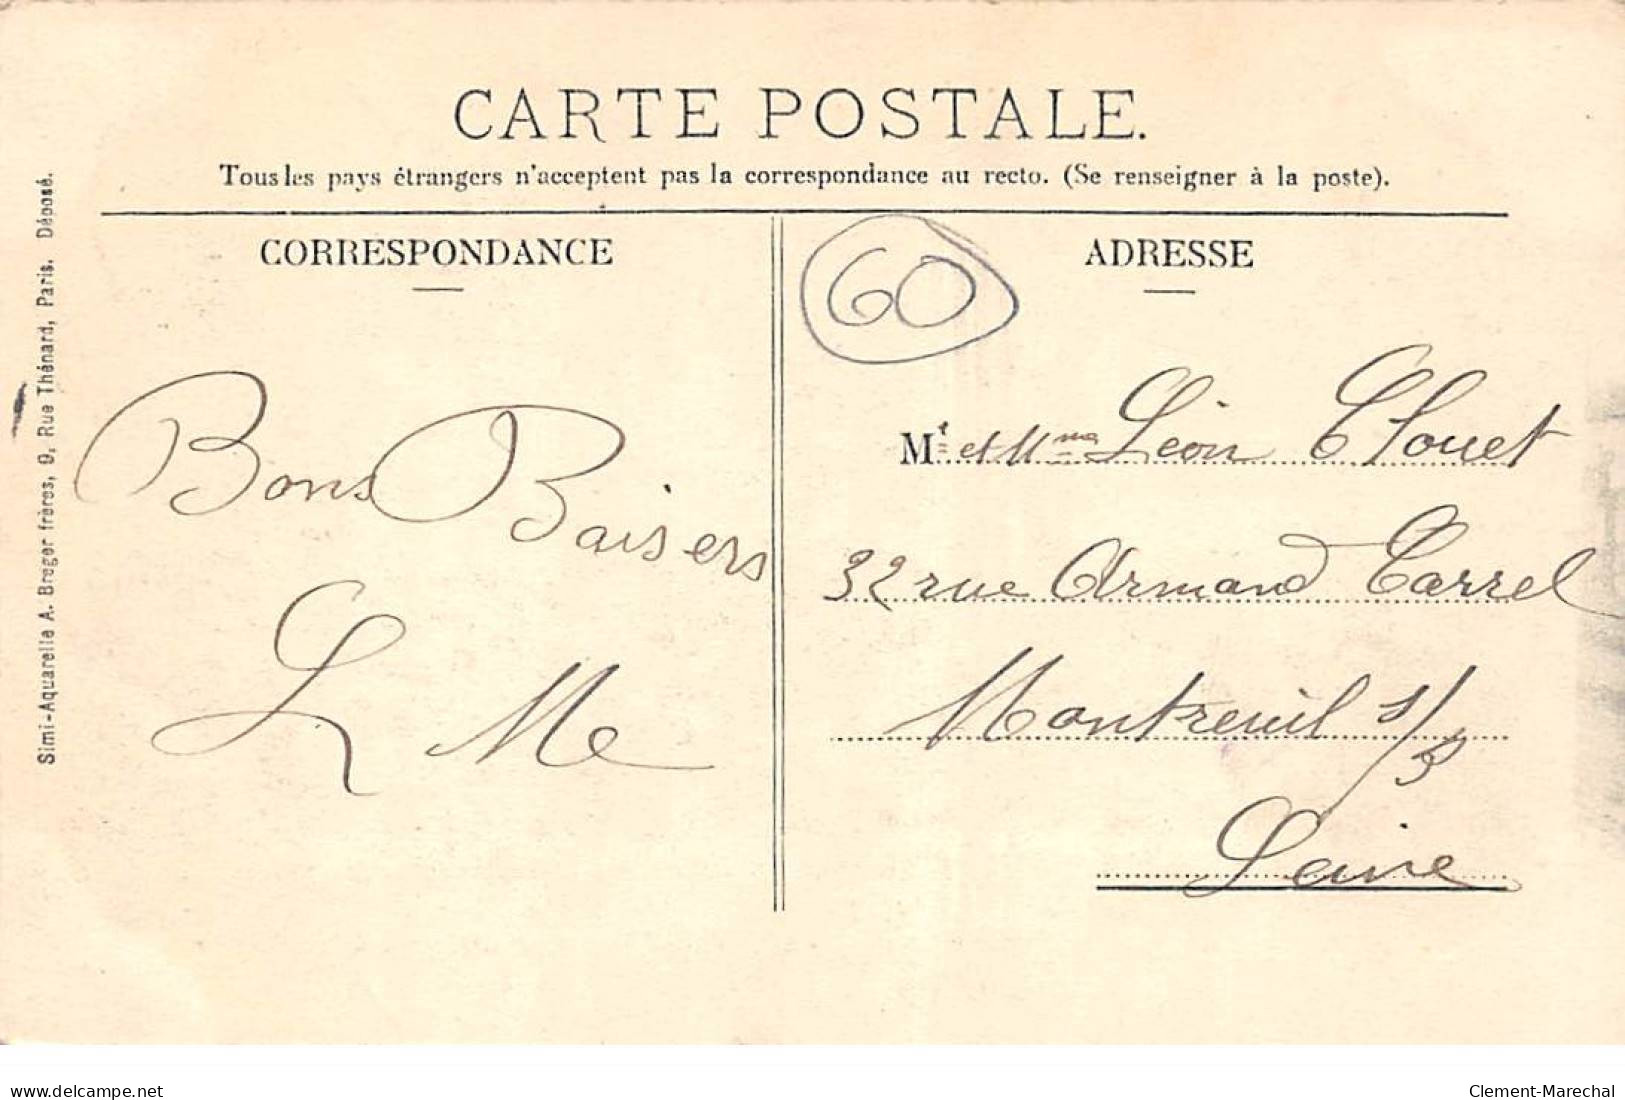 CARTE POSTALE.
Tous les pays étrangers n'acceptent pas la correspondance au recto. (Se renseigner à la poste).
Simi-Aquarelle A. Breger frères, 9, Rue Thénard, Paris. Déposé.
CORRESPONDANCE
Bons Baisers
L Me
60
ADRESSE
Mr et Mme Léon Clouet
32 rue Armand Carrel
Montreuil s/B
Seine
www.delcampe.net
Clement-Marechal